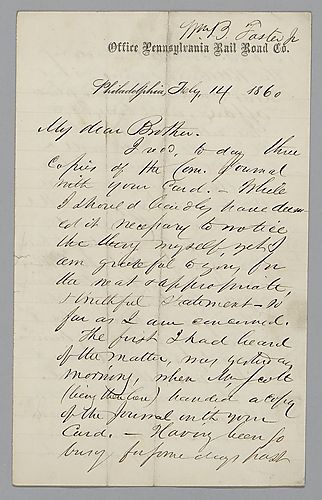 Wm B. Foster Jr
Office Pennsylvania Rail Road Co.
Philadelphia, Feby. 14 1860
My dear Brother.
I recd. to day three
Copies of the Com. Journal
with your Card. — While
I should hardly have deem
ed it necessary to notice
the thing myself, yet I
am grateful to you for
the neat & appropriate,
& truthful Statement — so
far as I am concerned.
The first I had heard
of the matter, was yesterday
morning, when Mr Scott
(being then here) handed a copy
of the Journal with your
Card. — Having been so
busy for some days past